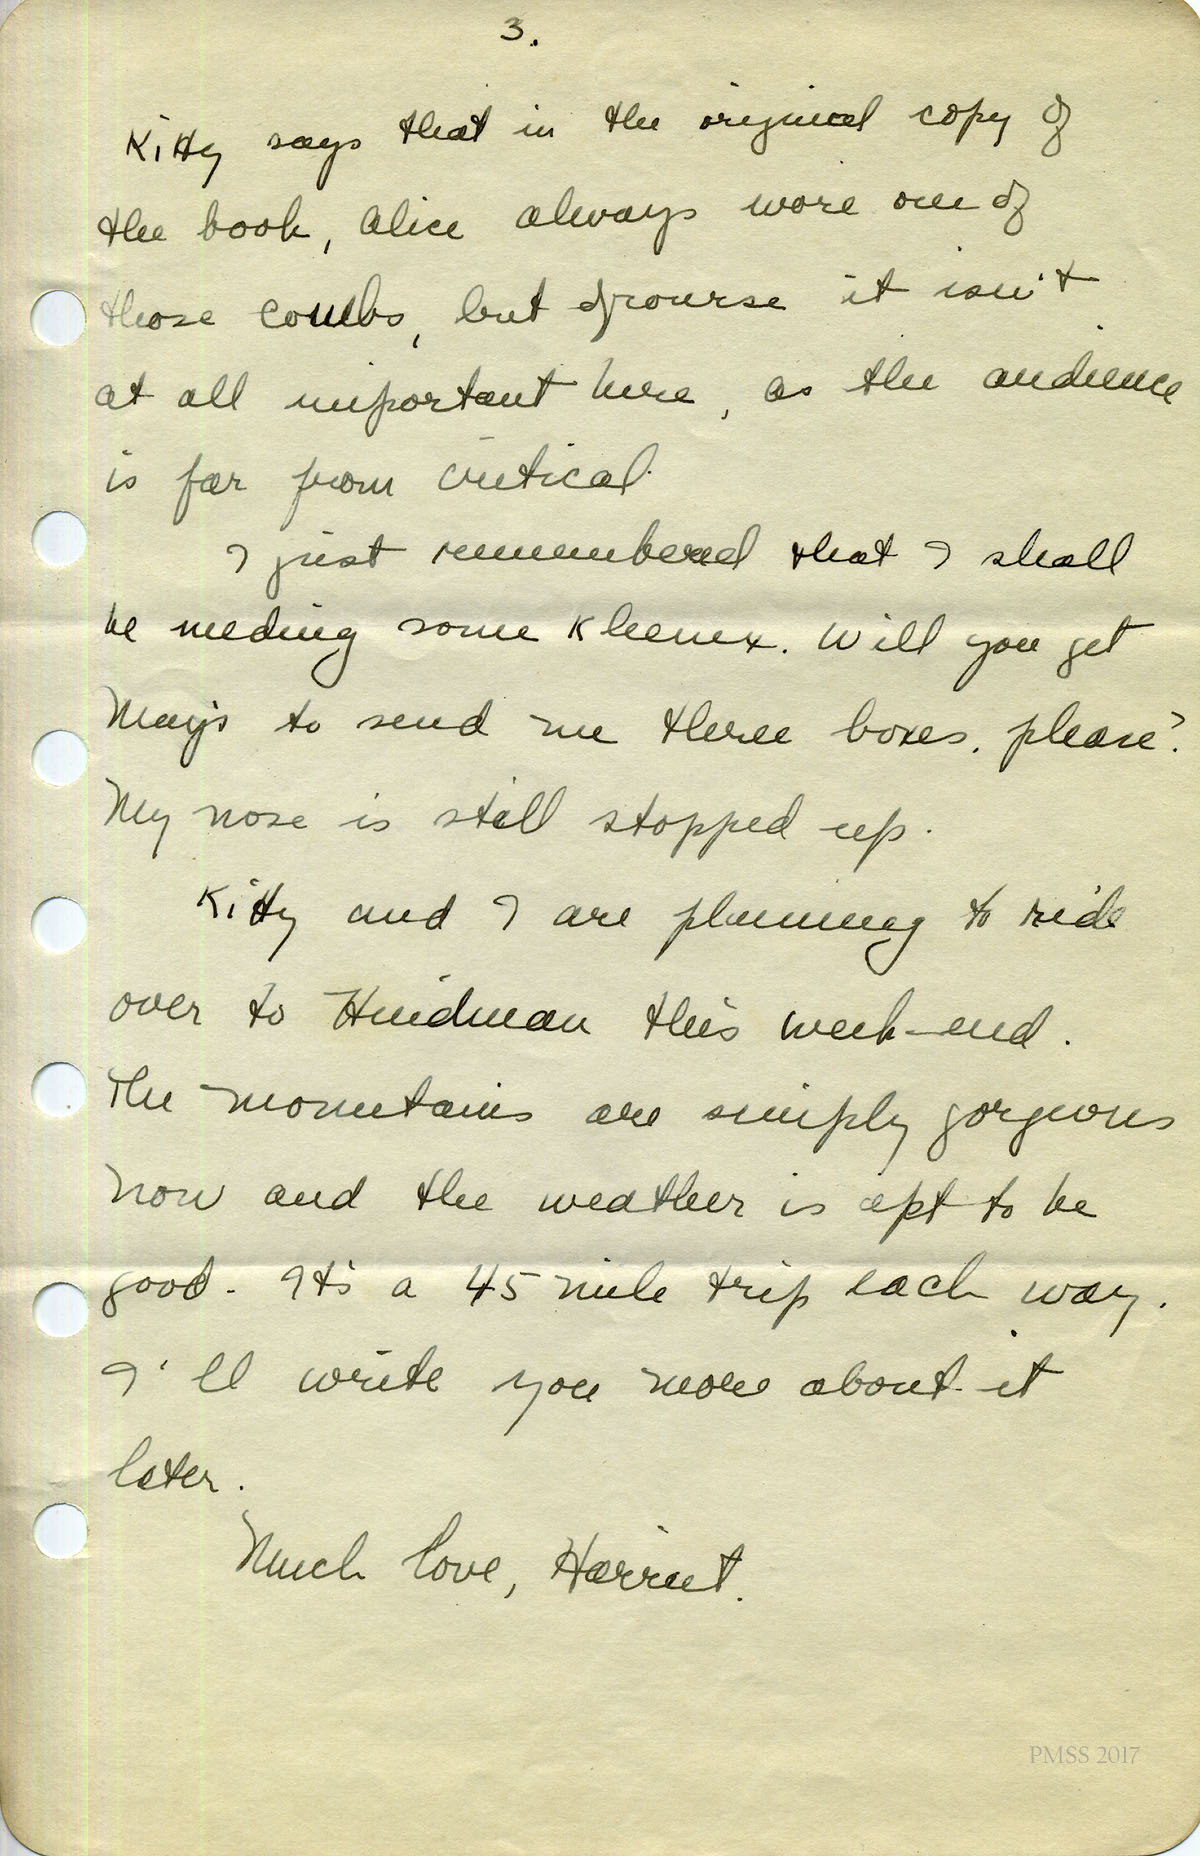 3.
Kitty says that in the original copy of
the book, Alice always wore one of
those combs, but of course it isn't
at all important here, as the audience
is far from critical.
I just remembered that I shall
be needing some Kleenex. Will you get
May's to send me three boxes, please?
My nose is still stopped up.
Kitty and I are planning to ride
over to Hindman this week-end.
The mountains are simply gorgeous
now and the weather is apt to be
good. It's a 45 mile trip each way.
I'll write you more about it
later.
Much love, Harriet.
PMSS 2017